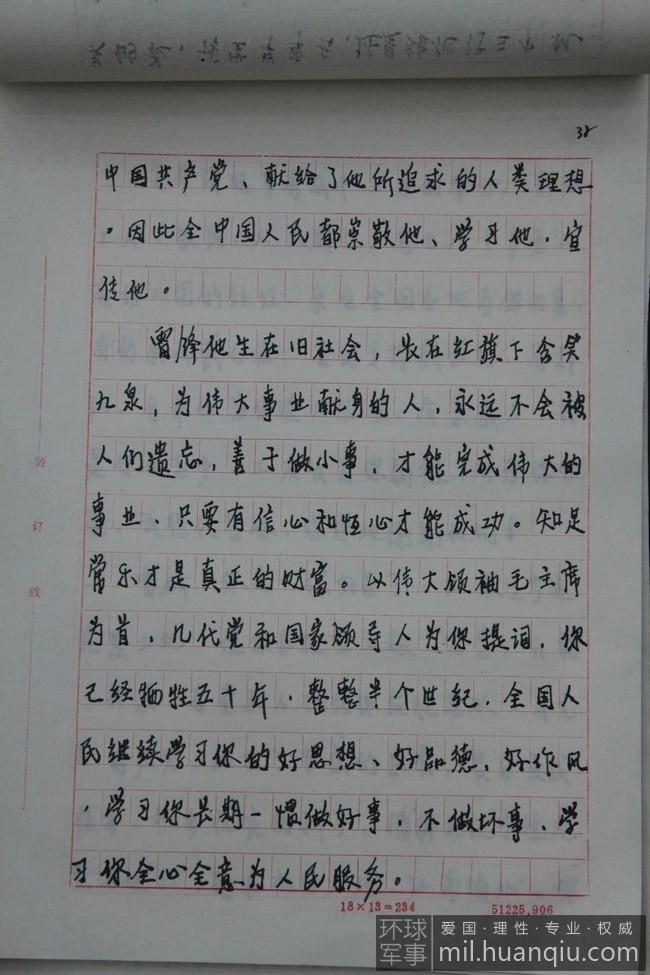 38
中国共产党、献给了他所追求的人类理想
。因此全中国人民都崇敬他、学习他，宣
传他。
雷锋他生在旧社会，长在红旗下含笑
九泉，为伟大事业献身的人，永远不会被
人们遗忘，善于做小事，才能完成伟大的
事业、只要有信心和恒心才能成功。知足
常乐才是真正的财富。以伟大领袖毛主席
为首，几代党和国家领导人为你提词，你
已经牺牲五十年，整整半个世纪，全国人
民继续学习你的好思想、好品德，好作风
，学习你长期一惯做好事，不做坏事、学
习你全心全意为人民服务。
装
订
线
18×13=234
51225.906
环球
军事
爱国·理性·专业·权威
mil.huanqiu.com